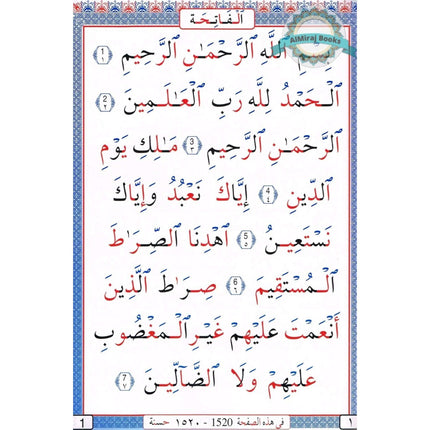 الْفَاتِحَة
AlMiraj Books
بِسْمِ ٱللَّهِ ٱلرَّحْمَٰنِ ٱلرَّحِيمِ 1 ١
ٱلْحَمْدُ لِلَّهِ رَبِّ ٱلْعَٰلَمِينَ 2 ٢
ٱلرَّحْمَٰنِ ٱلرَّحِيمِ 3 ٣ مَٰلِكِ يَوْمِ
ٱلدِّينِ 4 ٤ إِيَّاكَ نَعْبُدُ وَإِيَّاكَ
نَسْتَعِينُ 5 ٥ ٱهْدِنَا ٱلصِّرَٰطَ
ٱلْمُسْتَقِيمَ 6 ٦ صِرَٰطَ ٱلَّذِينَ
أَنْعَمْتَ عَلَيْهِمْ غَيْرِ ٱلْمَغْضُوبِ
عَلَيْهِمْ وَلَا ٱلضَّآلِّينَ 7 ٧
1 في هذه الصفحة 1520 - ١٥٢٠ حسنة ١